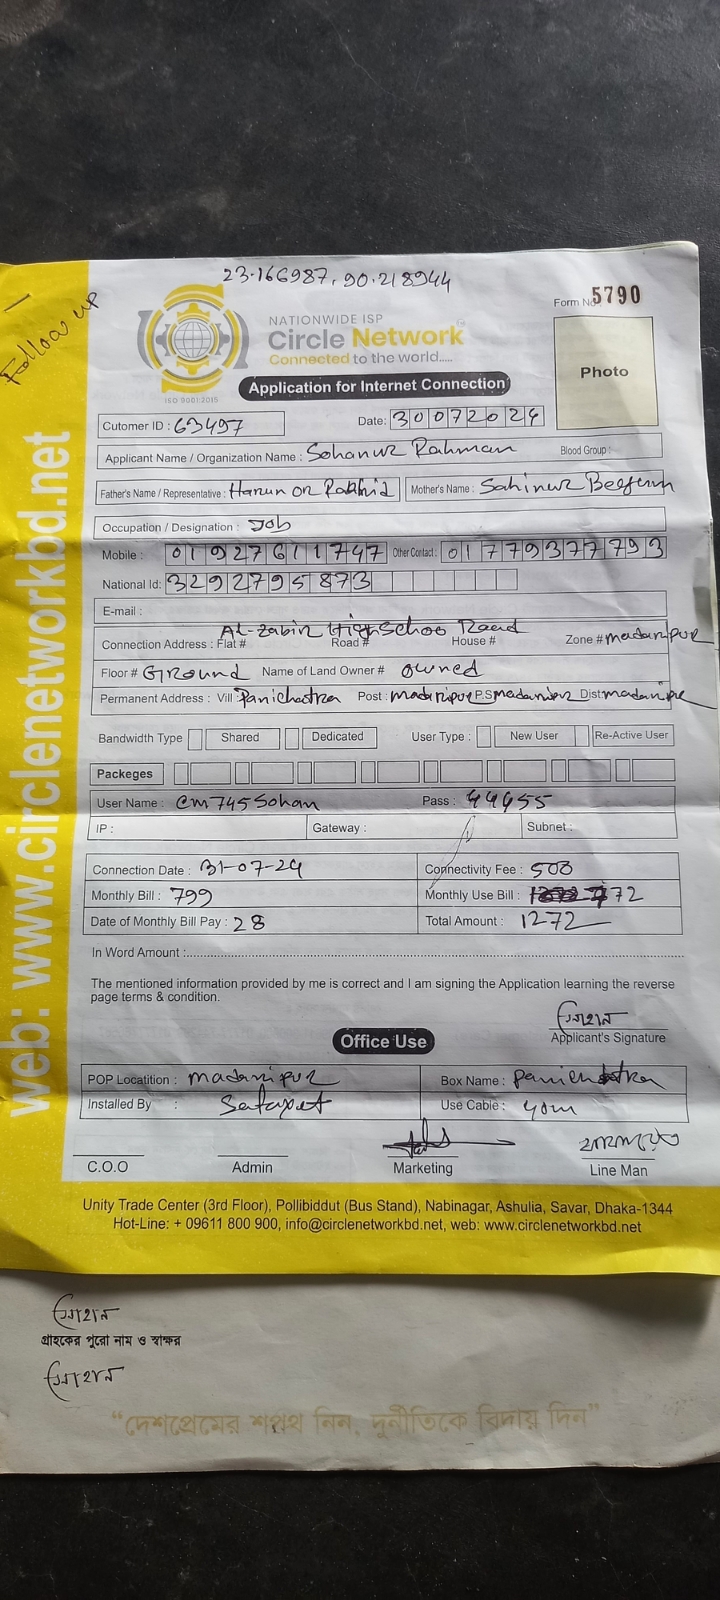 23.166987, 90.218944
Follow up
Form No. 5790
NATIONWIDE ISP
Circle Network
Connected to the world.....
ISO 9001:2015
Photo
Application for Internet Connection
Cutomer ID : 63497 Date: 30072024
Applicant Name / Organization Name : Sohanur Rahman Blood Group :
Father's Name / Representative : Harun or Rashid Mother's Name : Sahinur Beegum
Occupation / Designation : Job
Mobile : 01927611747 Other Contact : 01779377793
National Id: 3292795873
E-mail :
Al-Zabir High School Road
Connection Address : Flat # Road # House # Zone # madaripur
Floor # Ground Name of Land Owner # owned
Permanent Address : Vill Panichatra Post : madaripur P.S madaripur Dist madaripur
Bandwidth Type Shared Dedicated User Type : New User Re-Active User
Packeges
User Name : cm745sohan Pass : 44455
IP : Gateway : Subnet :
Connection Date : 31-07-24 Connectivity Fee : 500
Monthly Bill : 799 Monthly Use Bill : 772
Date of Monthly Bill Pay : 28 Total Amount : 1272
In Word Amount :
The mentioned information provided by me is correct and I am signing the Application learning the reverse
page terms & condition.
সোহান
Applicant's Signature
Office Use
POP Locatition : madaripur Box Name : panichatra
Installed By : Use Cable : 40m
C.O.O Admin Marketing Line Man
Unity Trade Center (3rd Floor), Pollibiddut (Bus Stand), Nabinagar, Ashulia, Savar, Dhaka-1344
Hot-Line: + 09611 800 900, info@circlenetworkbd.net, web: www.circlenetworkbd.net
web: www.circlenetworkbd.net
সোহান
গ্রাহকের পুরো নাম ও স্বাক্ষর
সোহান
“দেশপ্রেমের শপথ নিন, দুর্নীতিকে বিদায় দিন”